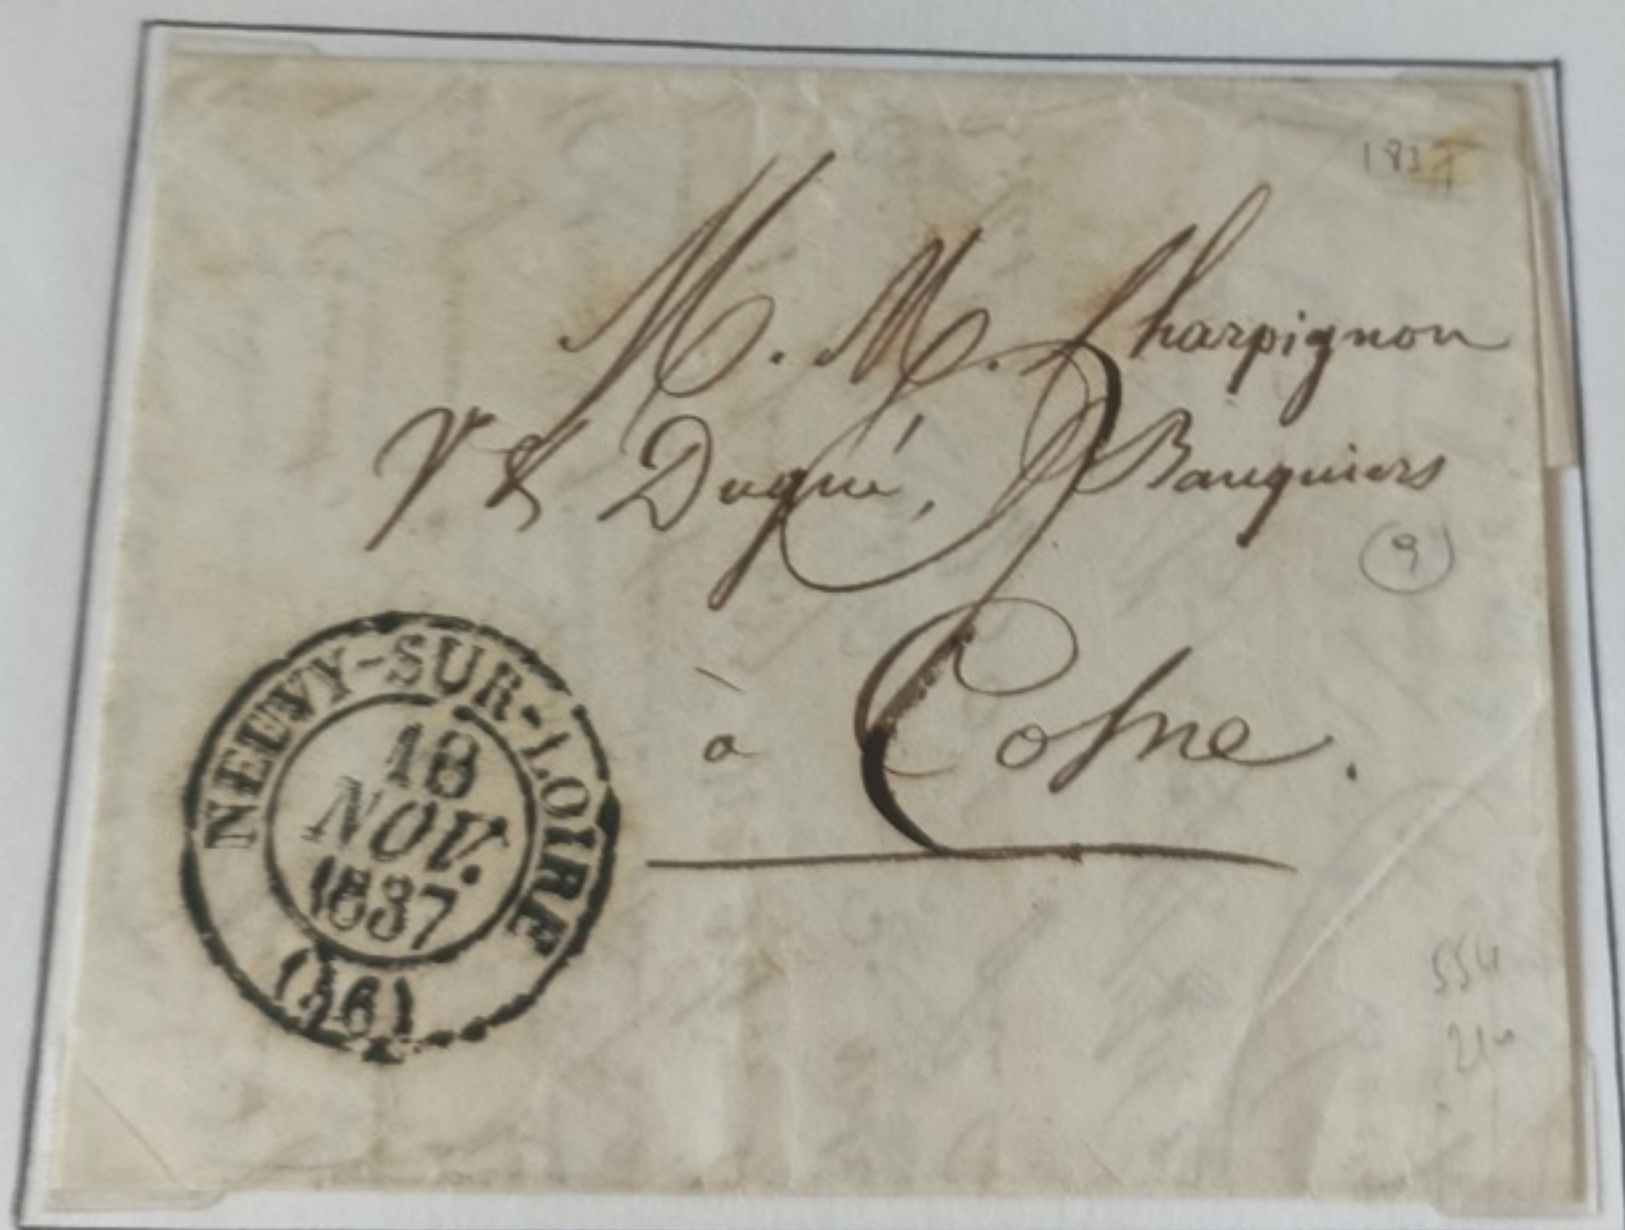 1837
M. M. Charpignon
Vr & Duqué, Banquiers
9
à Cosne.
NEUVY-SUR-LOIRE
18
NOV.
1837
554